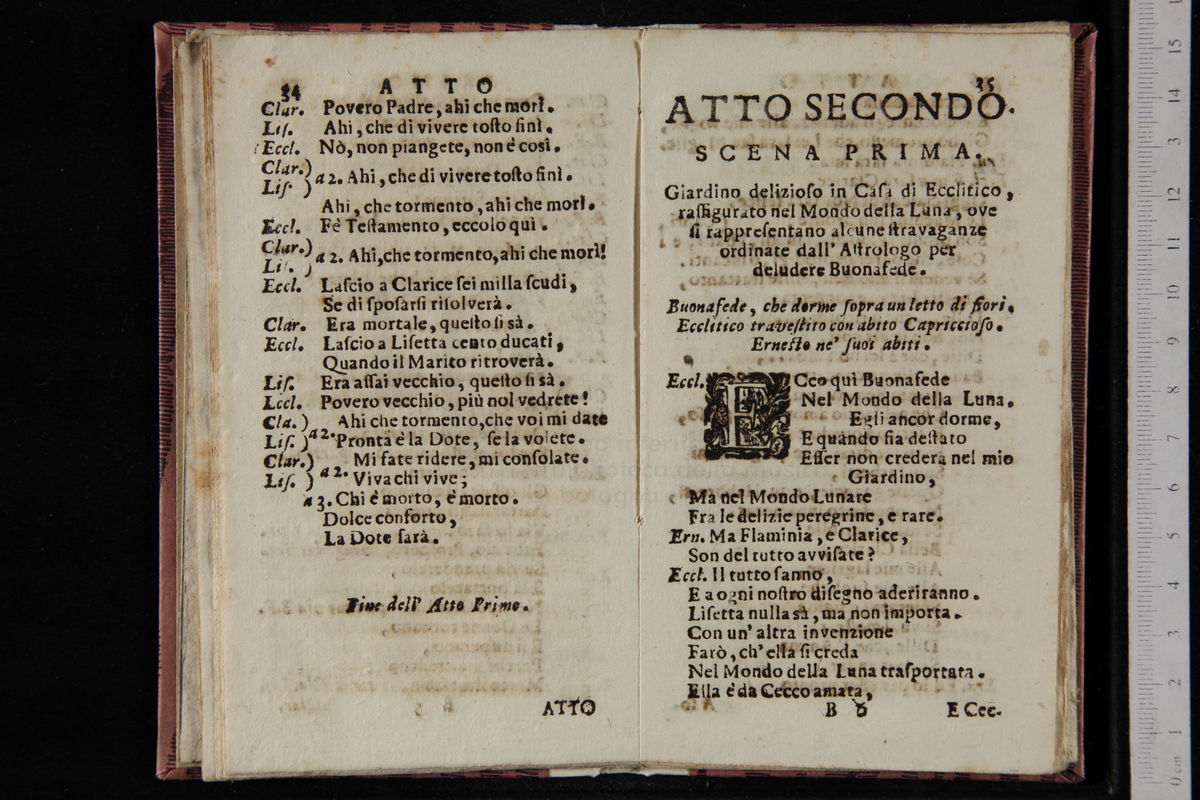 34 ATTO
Clar. Povero Padre, ahi che morì.
Lis. Ahi, che di vivere tosto finì.
Eccl. Nò, non piangete, non è così.
Clar.)
Lis. ) a 2. Ahi, che di vivere tosto finì.
Ahi, che tormento, ahi che morì.
Eccl. Fè Testamento, eccolo quì.
Clar.)
Lis. ) a 2. Ahi, che tormento, ahi che morì!
Eccl. Lascio a Clarice sei milla scudi,
Se di sposarsi risolverà.
Clar. Era mortale, questo si sà.
Eccl. Lascio a Lisetta cento ducati,
Quando il Marito ritroverà.
Lis. Era assai vecchio, questo si sà.
Eccl. Povero vecchio, più nol vedrete!
Cla. ) Ahi che tormento, che voi mi date
Lis. ) a 2. Pronta è la Dote, se la volete.
Clar.) Mi fate ridere, mi consolate.
Lis. ) a 2. Viva chi vive;
a 3. Chi è morto, è morto.
Dolce conforto,
La Dote sarà.
Fine dell' Atto Primo.
ATTO
35
ATTO SECONDO.
SCENA PRIMA.
Giardino delizioso in Casa di Ecclitico,
raffigurato nel Mondo della Luna, ove
si rappresentano alcune stravaganze
ordinate dall' Astrologo per
deludere Buonafede.
Buonafede, che dorme sopra un letto di fiori.
Ecclitico travestito con abito Capriccioso.
Ernesto ne' suoi abiti.
Eccl. ECco quì Buonafede
Nel Mondo della Luna.
Egli ancor dorme,
E quando sia destato
Esser non crederà nel mio
Giardino,
Ma nel Mondo Lunare
Fra le delizie peregrine, e rare.
Ern. Ma Flaminia, e Clarice,
Son del tutto avvisate?
Eccl. Il tutto sanno,
E a ogni nostro disegno aderiranno.
Lisetta nulla sà, ma non importa.
Con un' altra invenzione
Farò, ch' ella si creda
Nel Mondo della Luna trasportata.
Ella è da Cecco amata,
B 6 E Cec-